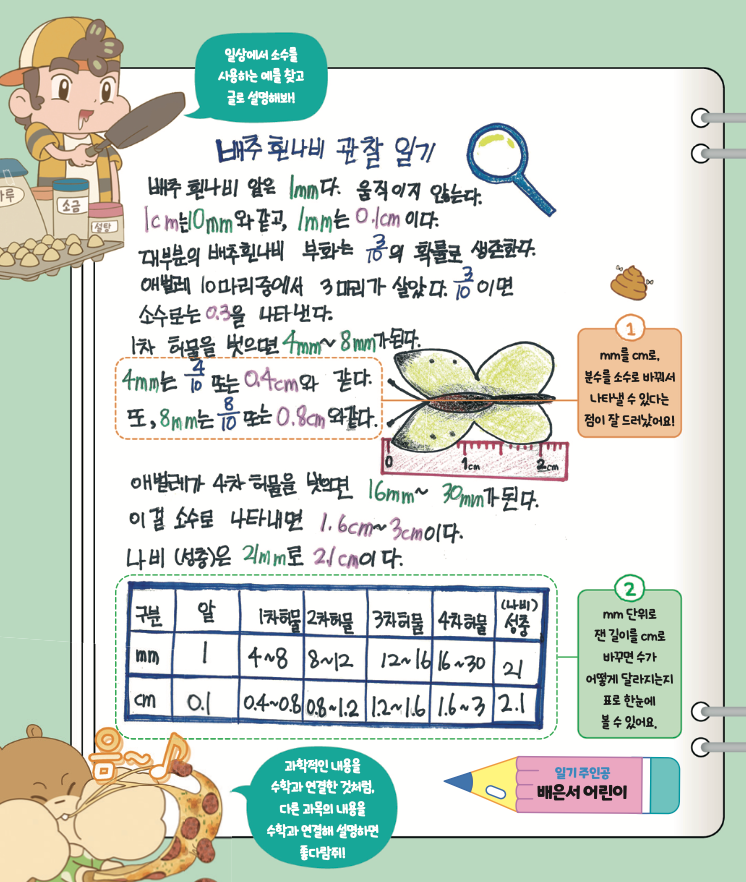 일상에서 소수를
사용하는 예를 찾고
글로 설명해봐!
가루
소금
설탕
배추 흰나비 관찰 일기
배추 흰나비 알은 1mm다. 움직이지 않는다.
1cm는 10mm와 같고, 1mm는 0.1cm이다.
대부분의 배추흰나비 부화는 3/10의 확률로 생존한다.
애벌레 10마리중에서 3마리가 살았다. 3/10이면
소수로는 0.3을 나타낸다.
1차 허물을 벗으면 4mm~8mm가된다.
4mm는 4/10 또는 0.4cm와 같다.
또, 8mm는 8/10 또는 0.8cm와같다.
0 1cm 2cm
1
mm를 cm로,
분수를 소수로 바꿔서
나타낼 수 있다는
점이 잘 드러났어요!
애벌레가 4차 허물을 벗으면 16mm~30mm가 된다.
이걸 소수로 나타내면 1.6cm~3cm이다.
나비 (성충)은 21mm로 2.1cm이다.
구분 알 1차허물 2차허물 3차허물 4차허물 (나비)성충
mm 1 4~8 8~12 12~16 16~30 21
cm 0.1 0.4~0.8 0.8~1.2 1.2~1.6 1.6~3 2.1
2
mm 단위로
잰 길이를 cm로
바꾸면 수가
어떻게 달라지는지
표로 한눈에
볼 수 있어요.
음~♪
과학적인 내용을
수학과 연결한 것처럼,
다른 과목의 내용을
수학과 연결해 설명하면
좋다람쥐!
일기 주인공
배은서 어린이